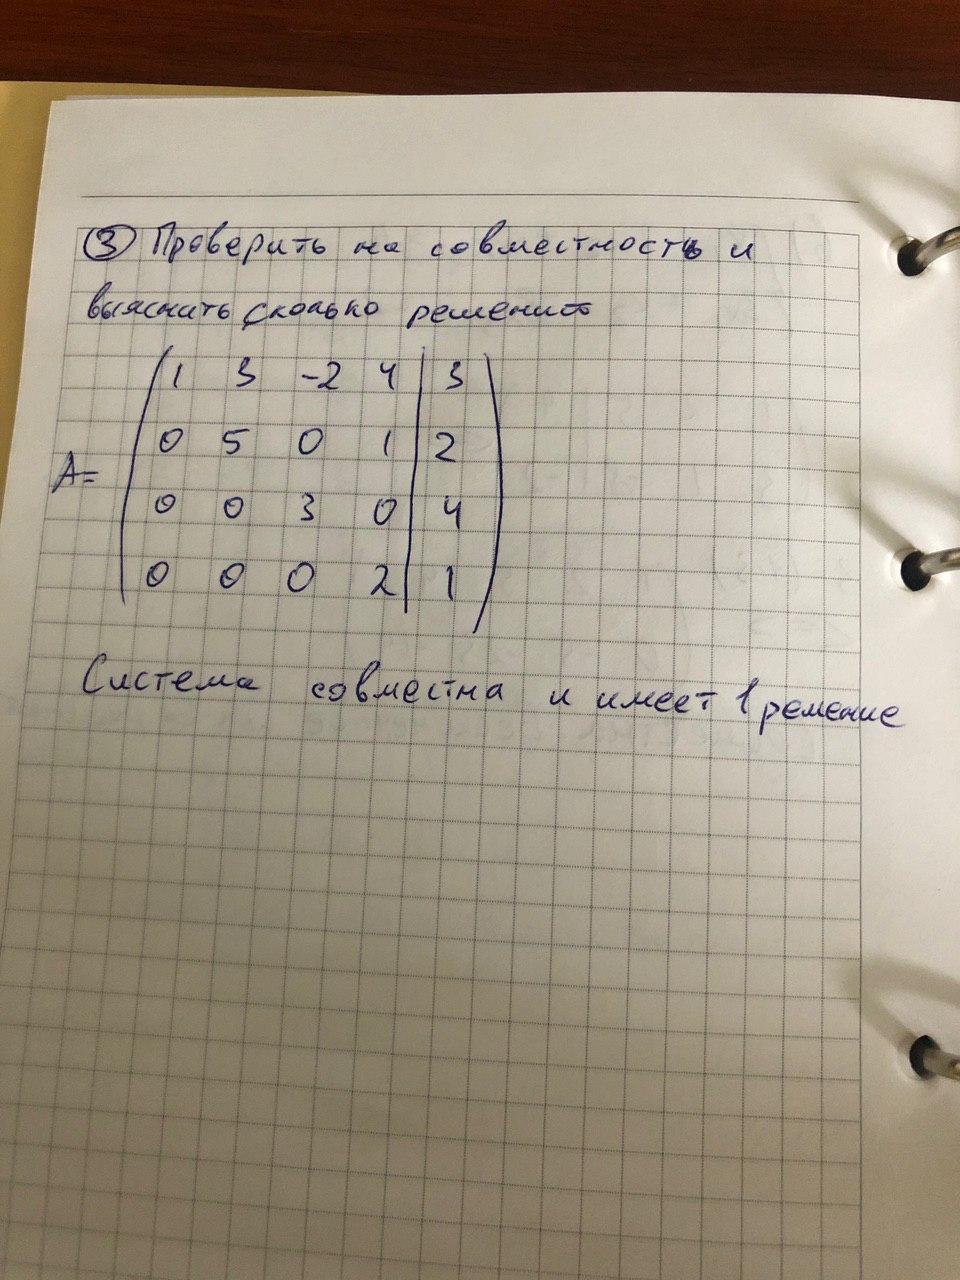 ③ Проверить на совместность и
выяснить сколько решений
1 3 -2 4 | 3
0 5 0 1 | 2
A=
0 0 3 0 | 4
0 0 0 2 | 1
Система совместна и имеет 1 решение